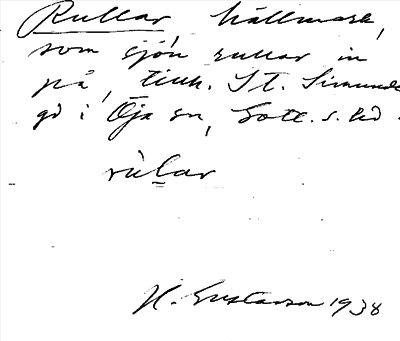 Rullar, hällmark,
som sjön rullar in
på, tillh. St. Simunde
gd i Öja sn, Gotl. s. hd.
rùlar
H. Gustavson 1938